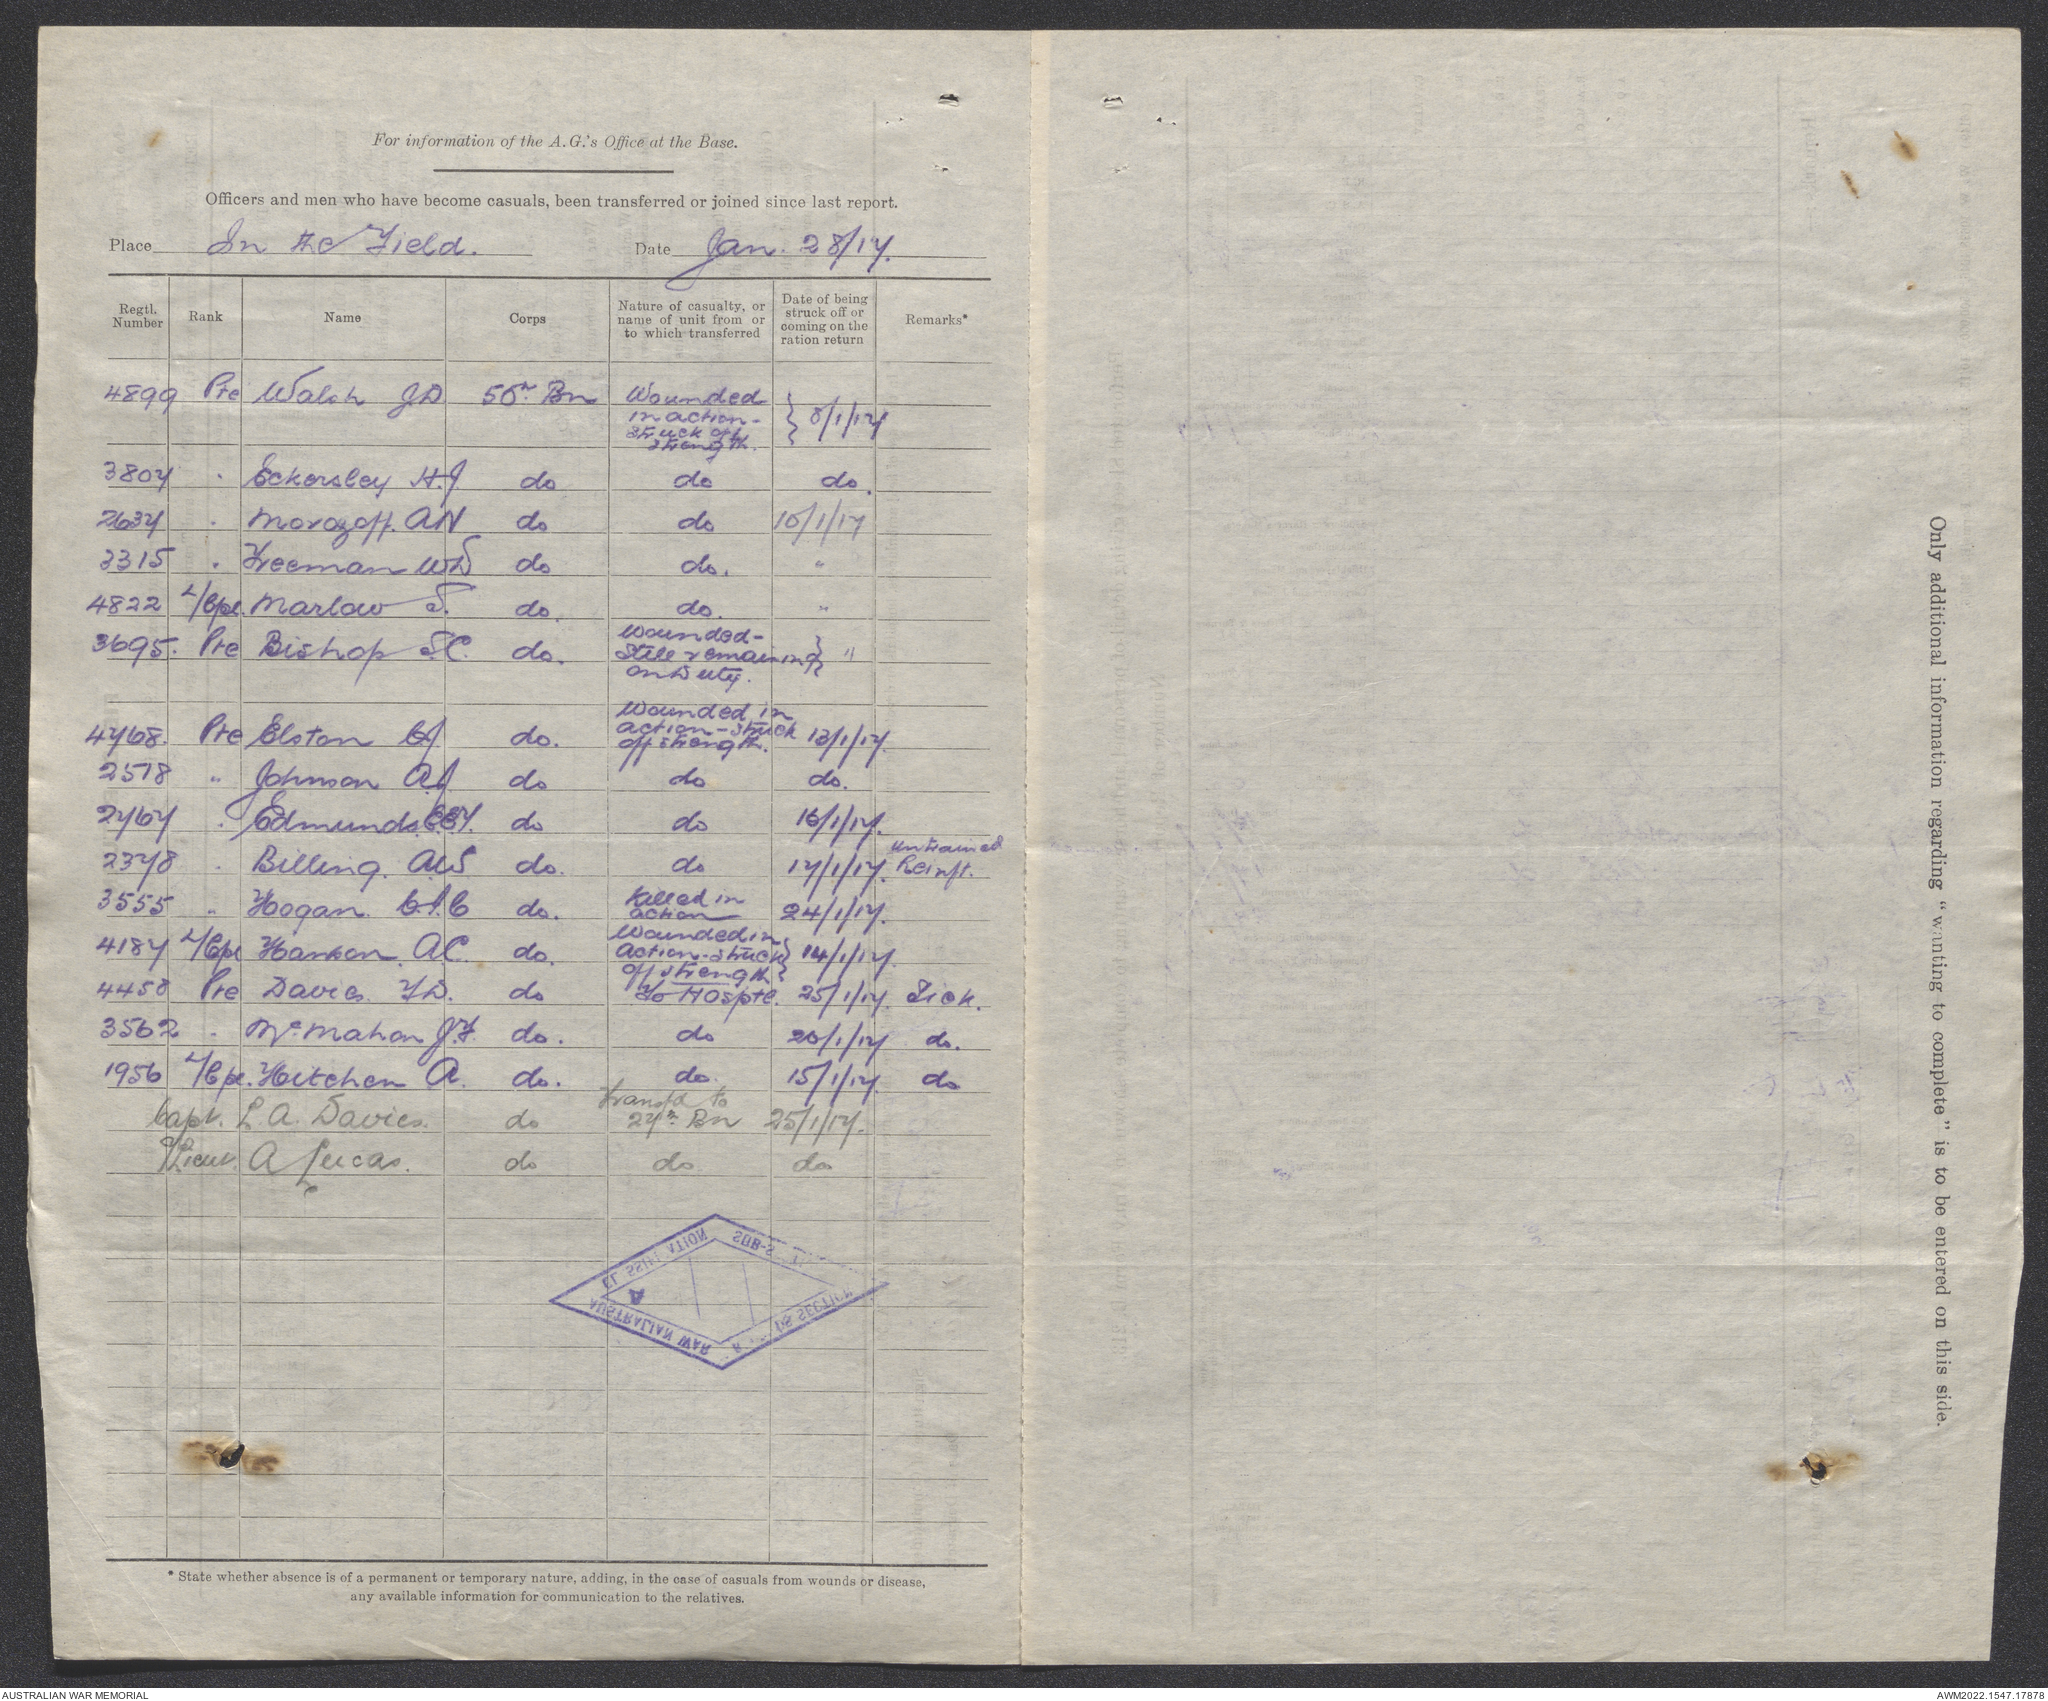 For information of the A.G.'s Office at the Base.
Officers and men who have become casuals, been transferred or joined since last report.
Place In the Field. Date Jan. 28/17.
Regtl. Number Rank Name Corps Nature of casualty, or name of unit from or to which transferred Date of being struck off or coming on the ration return Remarks*
4899 Pte Walsh J D Bn Wounded in action - struck off strength. 8/1/17
3807 " Eckersley H.J. do do do.
2637 " Morozoff. A N do do 10/1/17
3315 " Freeman W S do do. "
4822 L/Cpl. Marlow S. do. do. "
3695. Pte Bishop S.C. do. Wounded - still remaining on duty. "
4768. Pte Elston C J do. Wounded in action - struck off strength. 13/1/17.
2518 " Johnson A J do do do.
2767 " Edmunds do do 16/1/17.
2378 " Billing. A W S do. do 17/1/17. Untrained Reinft.
3555 " Hogan. do. Killed in action 24/1/17.
4187 L/Cpl Hanson A C. do. Wounded in action - struck off strength 14/1/17.
4458 Pte Davies F.D. do To Hosptl. 25/1/17. Sick.
3562 " McMahon J.F. do. do 20/1/17 do.
1956 L/Cpl. Hitchen A. do. do. 15/1/17. do
Capt. L. A. Davies. do Transfd to 27th Bn 25/1/17.
Lieut. A Lucas. do do do
SUB-S
AUSTRALIAN WAR
SECTION
A
* State whether absence is of a permanent or temporary nature, adding, in the case of casuals from wounds or disease,
any available information for communication to the relatives.
Only additional information regarding "wanting to complete" is to be entered on this side.
AUSTRALIAN WAR MEMORIAL
AWM2022.1547.17878